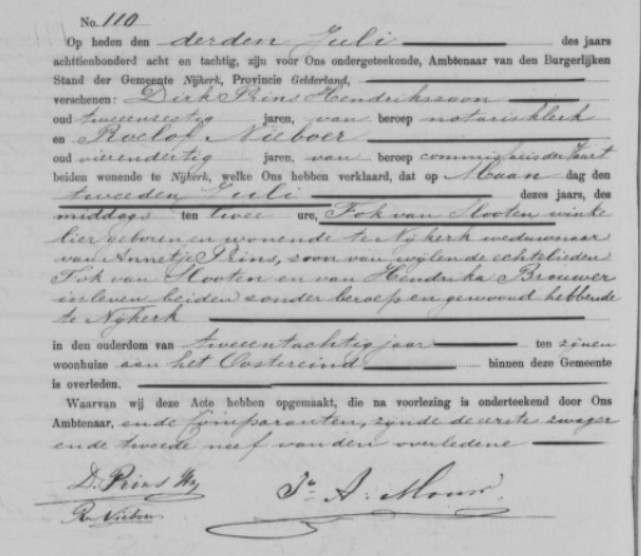 No. 110
Op heden den derden Juli des jaars
achttienhonderd acht en tachtig, zijn voor Ons ondergeteekende, Ambtenaar van den Burgerlijken
Stand der Gemeente Nijkerk, Provincie Gelderland,
verschenen: Dirk Prins Hendrikszoon
oud tweeenzestig jaren, van beroep notarisklerk
en Roelof Nieboer
oud vierendertig jaren, van beroep commissaris der vaart
beiden wonende te Nijkerk, welke Ons hebben verklaard, dat op Maan dag den
tweeden Juli dezes jaars, des
middags ten twee ure, Fok van Slooten winke
lier geboren en wonende te Nijkerk weduwenaar
van Annetje Prins, zoon van wijlen de echtelieden
Fok van Slooten en van Hendrika Brouwer
in leven beiden zonder beroep en gewoond hebbende
te Nijkerk
in den ouderdom van tweeentachtig jaar ten zijnen
woonhuize aan het Oostereind binnen deze Gemeente
is overleden.
Waarvan wij deze Acte hebben opgemaakt, die na voorlezing is onderteekend door Ons
Ambtenaar, en de Comparanten, zijnde de eerste zwager
en de tweede neef van den overledene
D. Prins Hz
R. Nieboer A. Mouw